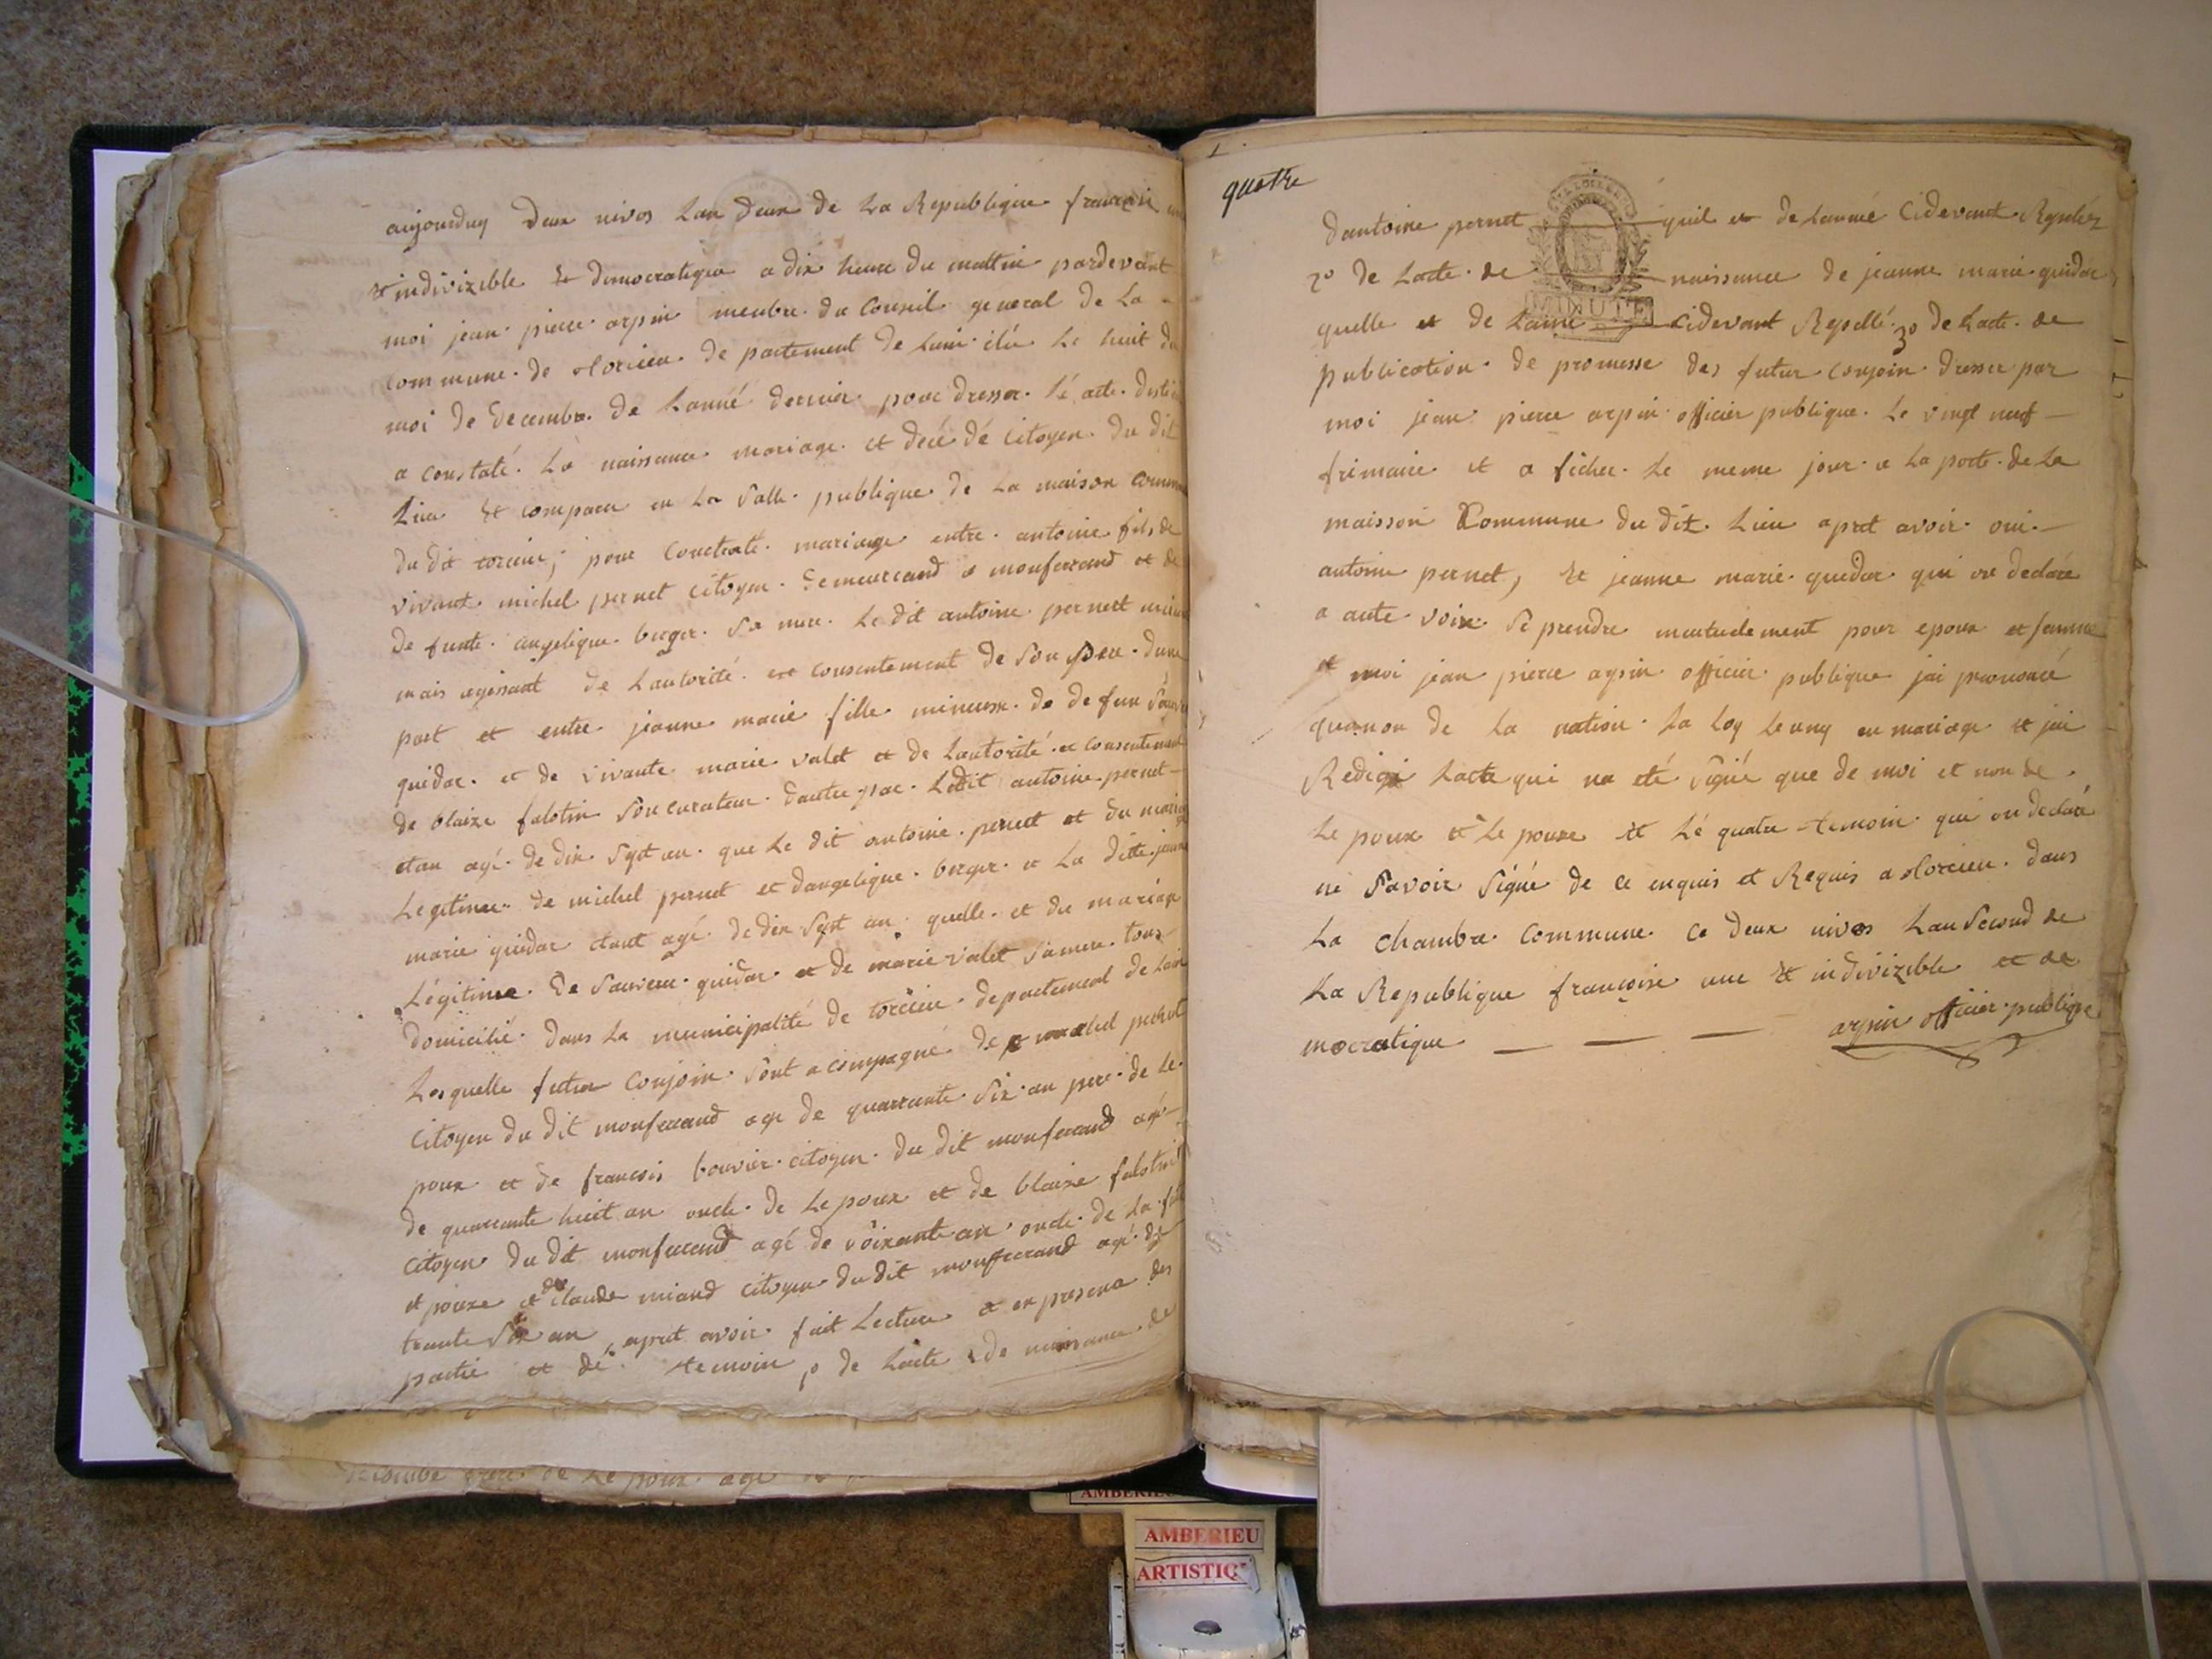 aujourduy deux nivos lan deux de La Republique francoise
et indivizible et democratique a dix heure du mattin pardevant
moi jean pierre arpin menbre du Conseil general de La
Commune de torcieu de partement de Lain élu Le huit du
moi de decembre de Lannéé dernier pour dresser lé acte destiné
a constaté La naissance mariage et decé dé Citoyen du dit
Lieu Et comparu en La Salle publique de La maison Commune
du dit torcieu ; pour Contracté mariage entre antoine fils de
vivant michel pernet Citoyen demeurrand a monferrand et de
de funte angelique berger Sa mere Le dit antoine pernet
mais agissant de Lautorité et consentement de Son pere dune
part et entre jeanne marie fille mineure de de fun
guidar et de vivante marie valet et de Lautorité et consentement
de blaize falotin Son curateur dautre par Ledit antoine pernet
etan agé de dix Sept an que Le dit antoine pernet et du mariage
Legitime de michel pernet et dangelique berger et La ditte jeanne
marie guidar etant agé de dix Sept an quelle et du mariage
Légitime de Sauveur guidar et de marie valet Samere tous
domicilié dans La municipalité de torcieu departement de Lain
Lesquelle futur Conjoin Sont acompagné de michel pernet
Citoyen du dit monferrand age de quarrante Six an pere de Le
poux et de francois bouvier citoyen du dit monferrand agé
de quarrante huit an oncle de Le poux et de blaize falotin
Citoyen du dit monferrand agé de Soixante an oncle de La
et pouze et de Claude miand Citoyen du dit monferrand agé de
trante Six an apret avoir fait Lecture et en presence des
partie et dé temoin 1º de Lacte de naissance de
de Le poux age
quatre
dantoine pernet quil et de Lanné Cidevant Repeléz
2º de Lacte de naissance de jeanne marie guidar
quelle et de Lanné Cidevant Repellé 3º de Lacte de
publication de promesse des futur Conjoin dresser par
moi jean pierre arpin officier publique Le vingt neuf
frimaire et a ficher Le meme jour a La porte de La
maisson Commune du dit Lieu apret avoir oui
antoine pernet, Et jeanne marie guidar qui on declaré
a aute voix Se prendre mutuelement pour epoux et femme
et moi jean pierre arpin officier publique jai prononcé
quanon de La nation La Loy Leuny en mariage et jai
Redigé Lacte qui na eté Signé que de moi et non de
Le poux et Le pouze et Lé quatre temoin qui on declaré
ne Savoir Signé de ce enquis et Requis a torcieu dans
La chambre Commune Ce deux nivos Lan Second de
La Republique françoise une et indivizible et de
mocratique arpin officier publique
MINUTE
AMBERIEU
AMBERIEU
ARTISTIQ